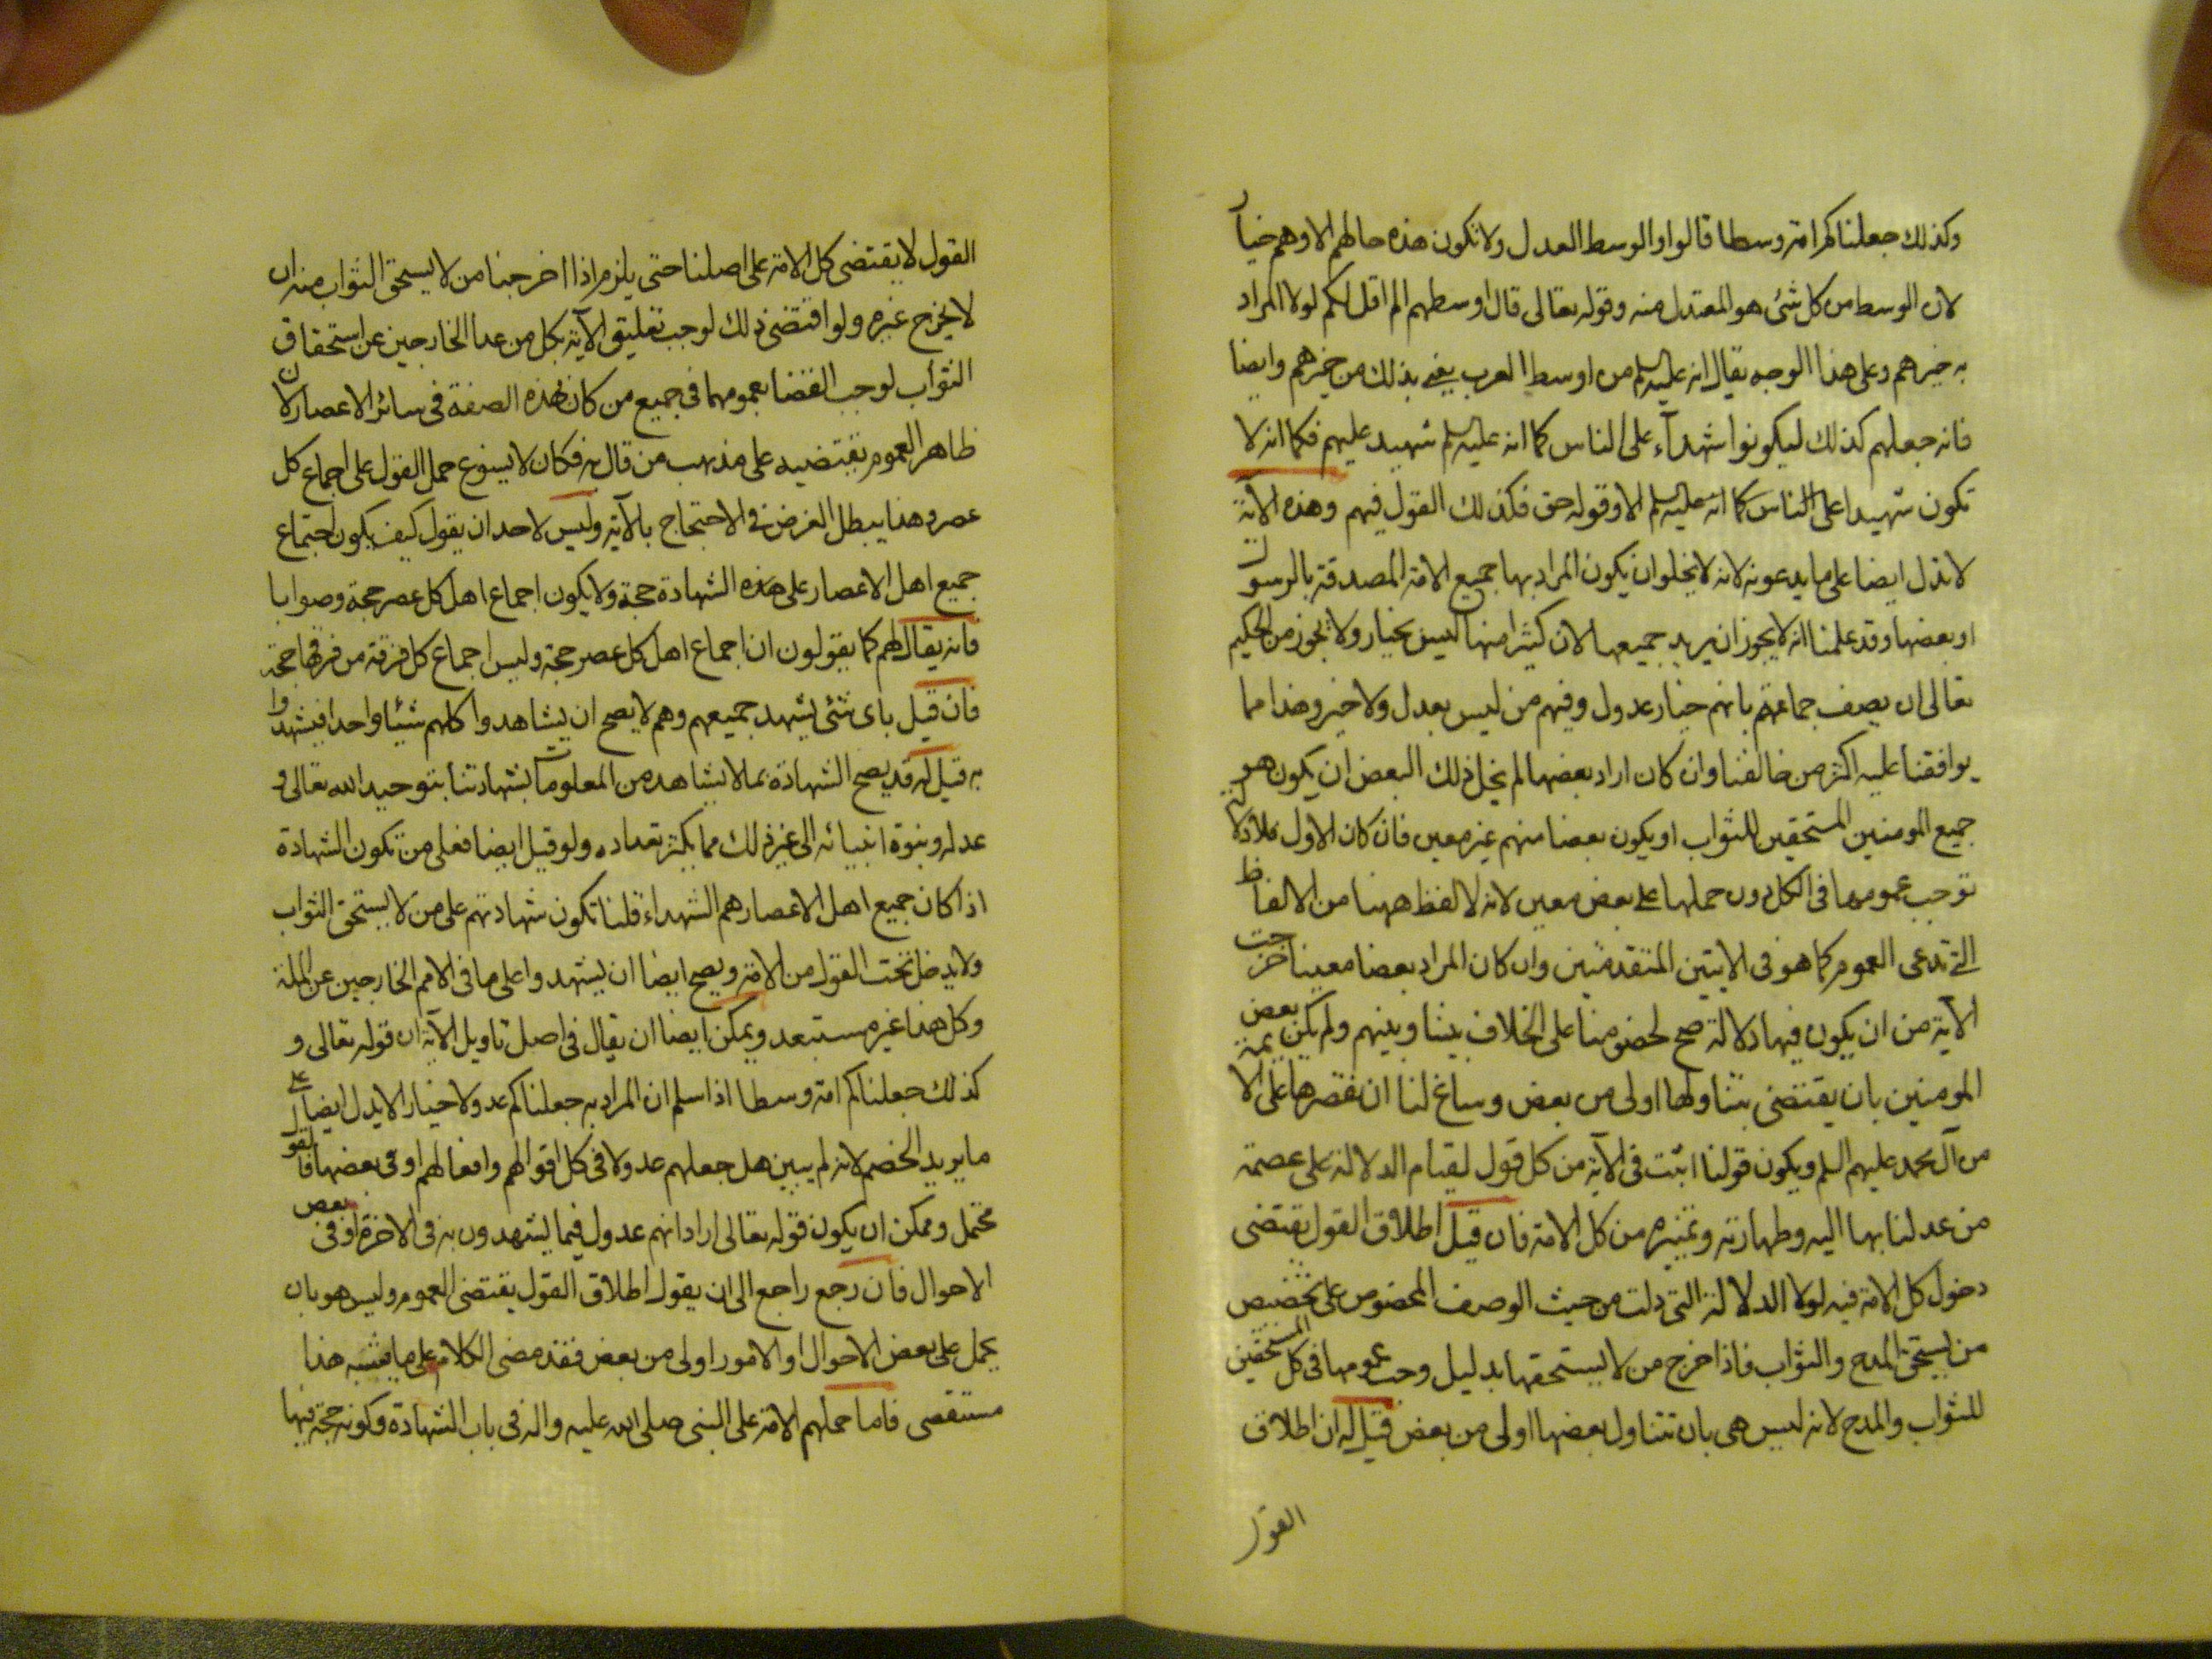 وكذلك جعلناكم امة وسطا قالوا والوسط العدل ولا تكون هذه حالهم الا وهم خيار
لان الوسط من كل شئ هو المعتدل منه وقوله تعالى قال اوسطهم الم اقل لكم لولا المراد
به خيرهم وعلى هذا الوجه يقال انه عليه السلم من اوسط العرب يعنى بذلك من خيرهم وايضا
فانه جعلهم كذلك ليكونوا شهدآء على الناس كما انه عليه السلم شهيد عليهم فكما انه لا
تكون شهيدا على الناس كما انه عليه السلم الا وقوله حق فكذلك القول فيهم وهذه الآية
لا تدل ايضا على ما يدعونه لانه لا يخلوا ان يكون المراد بها جميع الامة المصدقة بالرسول
او بعضها وقد علمنا انه لا يجوز ان يريد جميعها لان كثيرا منها ليس بخيار ولا يجوز من الحكيم
تعالى ان يصف جماعتهم بانهم خيار عدول وفيهم من ليس بعدل ولا خير وهذا مما
يوافقنا عليه اكثر من خالفنا وان كان اراد بعضها لم يخل ذلك البعض ان يكون هو
جميع المومنين المستحقين للثواب او يكون بعضا منهم غير معين فان كان الاول فلا دلالة
توجب عمومها فى الكل دون حملها على بعض معين لانه لا لفظ ههنا من الالفاظ
التى تدعى العموم كما هو فى الايتين المتقدمتين وان كان المراد بعضا معينا خرجت
الآية من ان يكون فيها دلالة صح لخصومنا على الخلاف بيننا وبينهم ولم يكن بعض
المومنين بان يقتضى تناولها اولى من بعض وساغ لنا ان نقصرها على الائمة
من آل محمد عليهم السلم ويكون قولنا اثبت فى الآية من كل قول لقيام الدلالة على عصمة
من عدلنا بها اليه وطهارته وتميزه من كل الامة فان قيل اطلاق القول يقتضى
دخول كل الامة فيه لولا الدلالة التى دلت من حيث الوصف المخصوص على تخصيص
من يستحق المدح والثواب فاذا خرج من لا يستحقها بدليل وجب عمومها فى كل المستحقين
للثواب والمدح لانه ليس هى بان تتناول بعضها اولى من بعض قيل له ان اطلاق
القول
القول لا يقتضى كل الامة على اصلنا حتى يلزم اذا اخرجنا من لا يستحق الثواب منه ان
لا يخرج غيره ولو اقتضى ذلك لوجب تعليق الآية بكل من عدا الخارجين عن استحقاق
الثواب لوجب القضا بعمومها فى جميع من كان بهذه الصفة فى سائر الاعصار لان
ظاهر العموم يقتضيه على مذهب من قال به فكان لا يسوغ حمل القول على اجماع كل
عصر وهذا يبطل الغرض فى الاحتجاج بالآية وليس لاحد ان يقول كيف يكون اجتماع
جميع اهل الاعصار على هذه الشهادة حجة ولا يكون اجماع اهل كل عصر حجة وصوابا
فانه يقال لهم كما يقولون ان اجماع اهل كل عصر حجة وليس اجماع كل فرقة من فرقها حجة
فان قيل باى شئ يشهد جميعهم وهم لا يصح ان يشاهدوا كلهم شيئا واحدا فيشهدوا
به قيل له قد يصح الشهادة بما لا يشاهد من المعلومات بشهادتنا بتوحيد الله تعالى و
عدله وبنوة انبيائه الى غير ذلك مما يكثر تعداده ولو قيل ايضا فعلى من تكون الشهادة
اذا كان جميع اهل الاعصار هم الشهداء قلنا تكون شهادتهم على من لا يستحق الثواب
ولا يدخل تحت القول من الامة ويصح ايضا ان يشهدوا على ما فى الامم الخارجين عن الملة
وكل هذا غير مستبعد ويمكن ايضا ان يقال فى اصل تاويل الآية ان قوله تعالى و
كذلك جعلناكم امة وسطا اذا سلم ان المراد به جعلناكم عدولا خيارا لا يدل ايضا على
ما يريد الخصم لانه لم يبين هل جعلهم عدولا فى كل اقوالهم وافعالهم او فى بعضها فالقول
محتمل وممكن ان يكون قوله تعالى اراد انهم عدول فيما يشهدون به فى الاخرة او فى بعض
الاحوال فان رجع راجع الى ان يقول اطلاق القول يقتضى العموم وليس هو بان
يحمل على بعض الاحوال او الامور اولى من بعض فقد مضى الكلام على ما يشبه هذا
مستقصى فاما حملهم الامة على النبى صلى الله عليه واله فى باب الشهادة وكونه حجة فيها